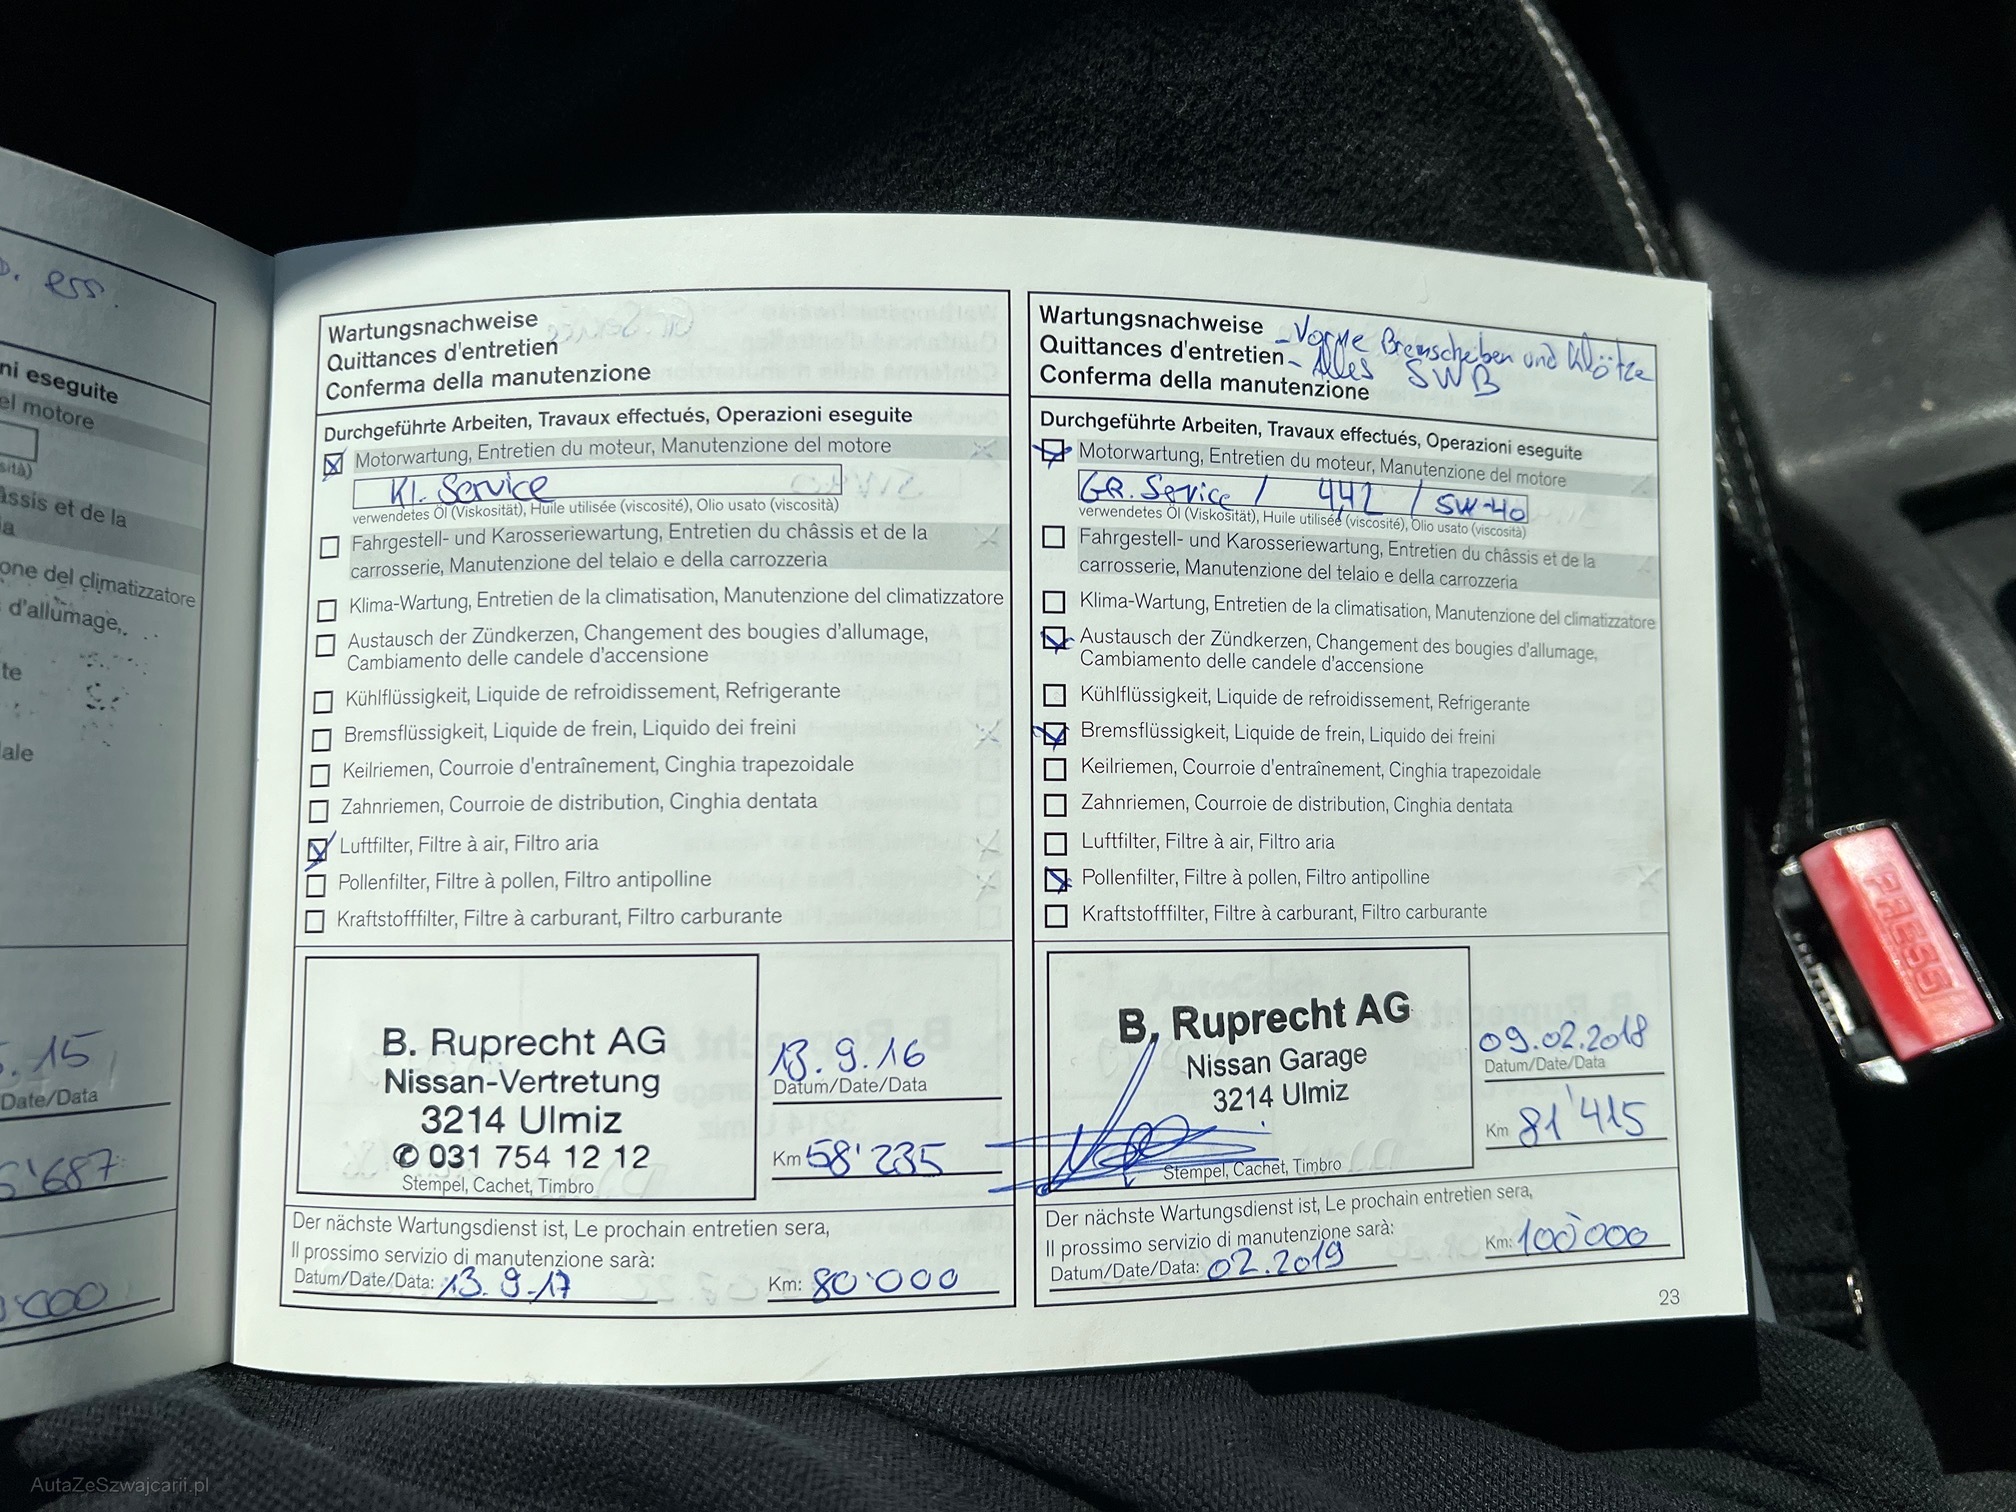 ess.
ni eseguite
el motore
sità)
âssis et de la
ia
one del climatizzatore
d'allumage,
te
ale
.15
Date/Data
'687
'000
Wartungsnachweise
Quittances d'entretien
Conferma della manutenzione
Durchgeführte Arbeiten, Travaux effectués, Operazioni eseguite
Motorwartung, Entretien du moteur, Manutenzione del motore
Kl. Service
verwendetes Öl (Viskosität), Huile utilisée (viscosité), Olio usato (viscosità)
Fahrgestell- und Karosseriewartung, Entretien du châssis et de la
carrosserie, Manutenzione del telaio e della carrozzeria
Klima-Wartung, Entretien de la climatisation, Manutenzione del climatizzatore
Austausch der Zündkerzen, Changement des bougies d'allumage,
Cambiamento delle candele d'accensione
Kühlflüssigkeit, Liquide de refroidissement, Refrigerante
Bremsflüssigkeit, Liquide de frein, Liquido dei freini
Keilriemen, Courroie d'entraînement, Cinghia trapezoidale
Zahnriemen, Courroie de distribution, Cinghia dentata
Luftfilter, Filtre à air, Filtro aria
Pollenfilter, Filtre à pollen, Filtro antipolline
Kraftstofffilter, Filtre à carburant, Filtro carburante
B. Ruprecht AG
Nissan-Vertretung
3214 Ulmiz
✆ 031 754 12 12
Stempel, Cachet, Timbro
13.9.16
Datum/Date/Data
Km 58'235
Der nächste Wartungsdienst ist, Le prochain entretien sera,
Il prossimo servizio di manutenzione sarà:
Datum/Date/Data: 13.9.17 Km: 80'000
Wartungsnachweise - Vorne Bremscheiben und Klötze
Quittances d'entretien - Alles SWB
Conferma della manutenzione
Durchgeführte Arbeiten, Travaux effectués, Operazioni eseguite
Motorwartung, Entretien du moteur, Manutenzione del motore
GR. Service / 4,4L / 5W-40
verwendetes Öl (Viskosität), Huile utilisée (viscosité), Olio usato (viscosità)
Fahrgestell- und Karosseriewartung, Entretien du châssis et de la
carrosserie, Manutenzione del telaio e della carrozzeria
Klima-Wartung, Entretien de la climatisation, Manutenzione del climatizzatore
Austausch der Zündkerzen, Changement des bougies d'allumage,
Cambiamento delle candele d'accensione
Kühlflüssigkeit, Liquide de refroidissement, Refrigerante
Bremsflüssigkeit, Liquide de frein, Liquido dei freini
Keilriemen, Courroie d'entraînement, Cinghia trapezoidale
Zahnriemen, Courroie de distribution, Cinghia dentata
Luftfilter, Filtre à air, Filtro aria
Pollenfilter, Filtre à pollen, Filtro antipolline
Kraftstofffilter, Filtre à carburant, Filtro carburante
B. Ruprecht AG
Nissan Garage
3214 Ulmiz
Stempel, Cachet, Timbro
09.02.2018
Datum/Date/Data
Km 81'415
Der nächste Wartungsdienst ist, Le prochain entretien sera,
Il prossimo servizio di manutenzione sarà:
Datum/Date/Data: 02.2019 Km: 100'000
23
PRESS
AutaZeSzwajcarii.pl